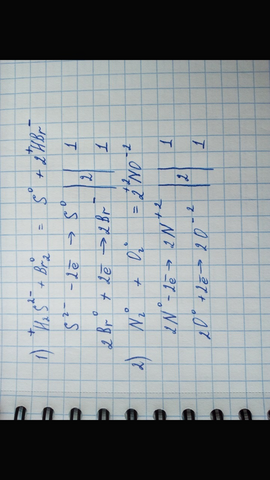 1) ⁺H₂S²⁻ + Br₂⁰ = S⁰ + 2⁺HBr⁻
S²⁻ -2ē → S⁰ | 2 | 1
2Br⁰ + 2ē → 2Br⁻ | | 1
2) N₂⁰ + O₂⁰ = 2⁺²NO⁻²
2N⁰ -2ē → 2N⁺² | 2 | 1
2O⁰ +2ē → 2O⁻² | | 1